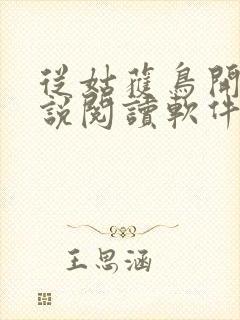 從姑獲鳥開
說閱讀軟件
王思涵